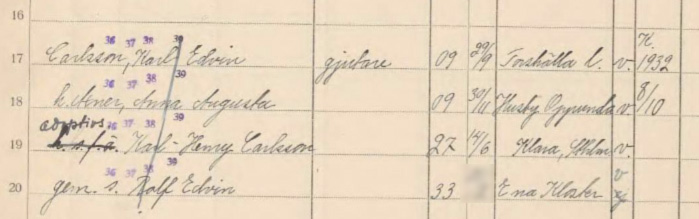 16
36 37 38 39 K.
17 Carlsson, Karl Edvin gjutare 09 29/9 Torshälla l. v. 1932
36 37 38 39
18 h. Aner, Anna Augusta 09 30/11 Husby Oppunda v. 8/10
adoptivs. 36 37 38 39
19 h. s. f. ä. Karl-Henry Carlsson 27 14/6 Klara, Sthlm v.
36 37 38 39 v
20 gem. s. Rolf Edvin 33 Ena Kloster